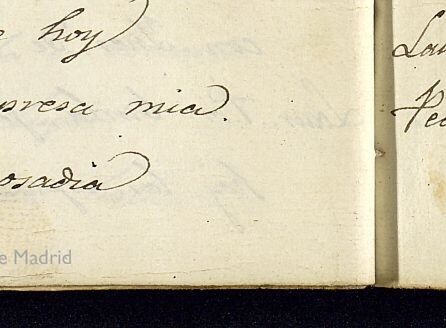 e hoy
presa mia.
osadia
e Madrid
Lau
Ped